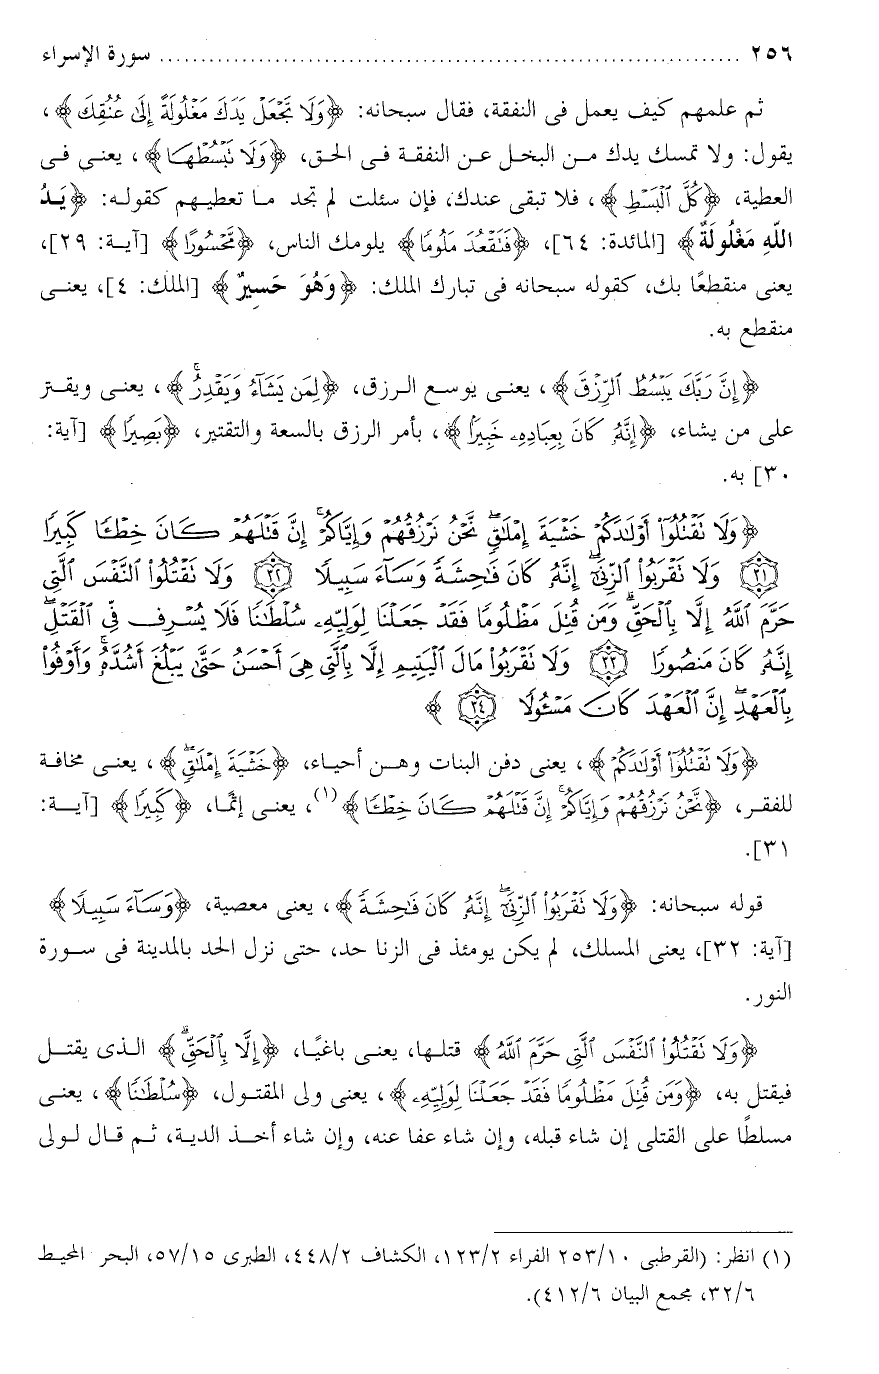 ٢٥٦ ........................................................................ سورة الإسراء
ثم علمهم كيف يعمل فى النفقة، فقال سبحانه: ﴿وَلَا تَجْعَلْ يَدَكَ مَغْلُولَةً إِلَىٰ عُنُقِكَ﴾،
يقول: ولا تمسك يدك من البخل عن النفقة فى الحق، ﴿وَلَا تَبْسُطْهَا﴾، يعنى فى
العطية، ﴿كُلَّ الْبَسْطِ﴾، فلا تبقى عندك، فإن سئلت لم تجد ما تعطيهم كقوله: ﴿يَدُ
اللَّهِ مَغْلُولَةٌ﴾ [المائدة: ٦٤]، ﴿فَتَقْعُدَ مَلُومًا﴾ يلومك الناس، ﴿مَّحْسُورًا﴾ [آية: ٢٩]،
يعنى منقطعًا بك، كقوله سبحانه فى تبارك الملك: ﴿وَهُوَ حَسِيرٌ﴾ [الملك: ٤]، يعنى
منقطع به.
﴿إِنَّ رَبَّكَ يَبْسُطُ الرِّزْقَ﴾، يعنى يوسع الرزق، ﴿لِمَن يَشَآءُ وَيَقْدِرُ ۚ﴾، يعنى ويقتر
على من يشاء، ﴿إِنَّهُ كَانَ بِعِبَادِهِۦ خَبِيرًا﴾، بأمر الرزق بالسعة والتقتير، ﴿بَصِيرًا﴾ [آية:
٣٠] به.
﴿وَلَا تَقْتُلُوٓا۟ أَوْلَٰدَكُمْ خَشْيَةَ إِمْلَٰقٍ ۖ نَّحْنُ نَرْزُقُهُمْ وَإِيَّاكُمْ ۚ إِنَّ قَتْلَهُمْ كَانَ خِطْـًٔا كَبِيرًا
٣١ وَلَا تَقْرَبُوا۟ الزِّنَىٰٓ ۖ إِنَّهُ كَانَ فَٰحِشَةً وَسَآءَ سَبِيلًا ٣٢ وَلَا تَقْتُلُوا۟ النَّفْسَ الَّتِى
حَرَّمَ اللَّهُ إِلَّا بِالْحَقِّ ۗ وَمَن قُتِلَ مَظْلُومًا فَقَدْ جَعَلْنَا لِوَلِيِّهِۦ سُلْطَٰنًا فَلَا يُسْرِف فِّى الْقَتْلِ ۖ
إِنَّهُ كَانَ مَنصُورًا ٣٣ وَلَا تَقْرَبُوا۟ مَالَ الْيَتِيمِ إِلَّا بِالَّتِى هِىَ أَحْسَنُ حَتَّىٰ يَبْلُغَ أَشُدَّهُ ۚ وَأَوْفُوا۟
بِالْعَهْدِ ۖ إِنَّ الْعَهْدَ كَانَ مَسْـُٔولًا ٣٤ ﴾
﴿وَلَا تَقْتُلُوٓا۟ أَوْلَٰدَكُمْ﴾، يعنى دفن البنات وهن أحياء، ﴿خَشْيَةَ إِمْلَٰقٍ ۖ﴾، يعنى مخافة
للفقر، ﴿نَّحْنُ نَرْزُقُهُمْ وَإِيَّاكُمْ ۚ إِنَّ قَتْلَهُمْ كَانَ خِطْـًٔا﴾(١)، يعنى إثمًا، ﴿كَبِيرًا﴾ [آية:
٣١].
قوله سبحانه: ﴿وَلَا تَقْرَبُوا۟ الزِّنَىٰٓ ۖ إِنَّهُ كَانَ فَٰحِشَةً﴾، يعنى معصية، ﴿وَسَآءَ سَبِيلًا﴾
[آية: ٣٢]، يعنى المسلك، لم يكن يومئذ فى الزنا حد، حتى نزل الحد بالمدينة فى سورة
النور.
﴿وَلَا تَقْتُلُوا۟ النَّفْسَ الَّتِى حَرَّمَ اللَّهُ﴾ قتلها، يعنى باغيًا، ﴿إِلَّا بِالْحَقِّ ۗ﴾ الذى يقتل
فيقتل به، ﴿وَمَن قُتِلَ مَظْلُومًا فَقَدْ جَعَلْنَا لِوَلِيِّهِۦ﴾، يعنى ولى المقتول، ﴿سُلْطَٰنًا﴾، يعنى
مسلطًا على القتلى إن شاء قبله، وإن شاء عفا عنه، وإن شاء أخذ الدية، ثم قال لولى
(١) انظر: (القرطبى ٢٥٣/١٠ الفراء ١٢٣/٢، الكشاف ٤٤٨/٢، الطبرى ٥٧/١٥، البحر المحيط
٣٢/٦، مجمع البيان ٤١٢/٦).